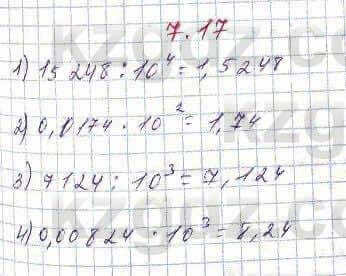 7.17
1) 15 248 : 10⁴ = 1,5248
2) 0,0174 · 10² = 1,74
3) 7124 : 10³ = 7,124
4) 0,00824 · 10³ = 8,24